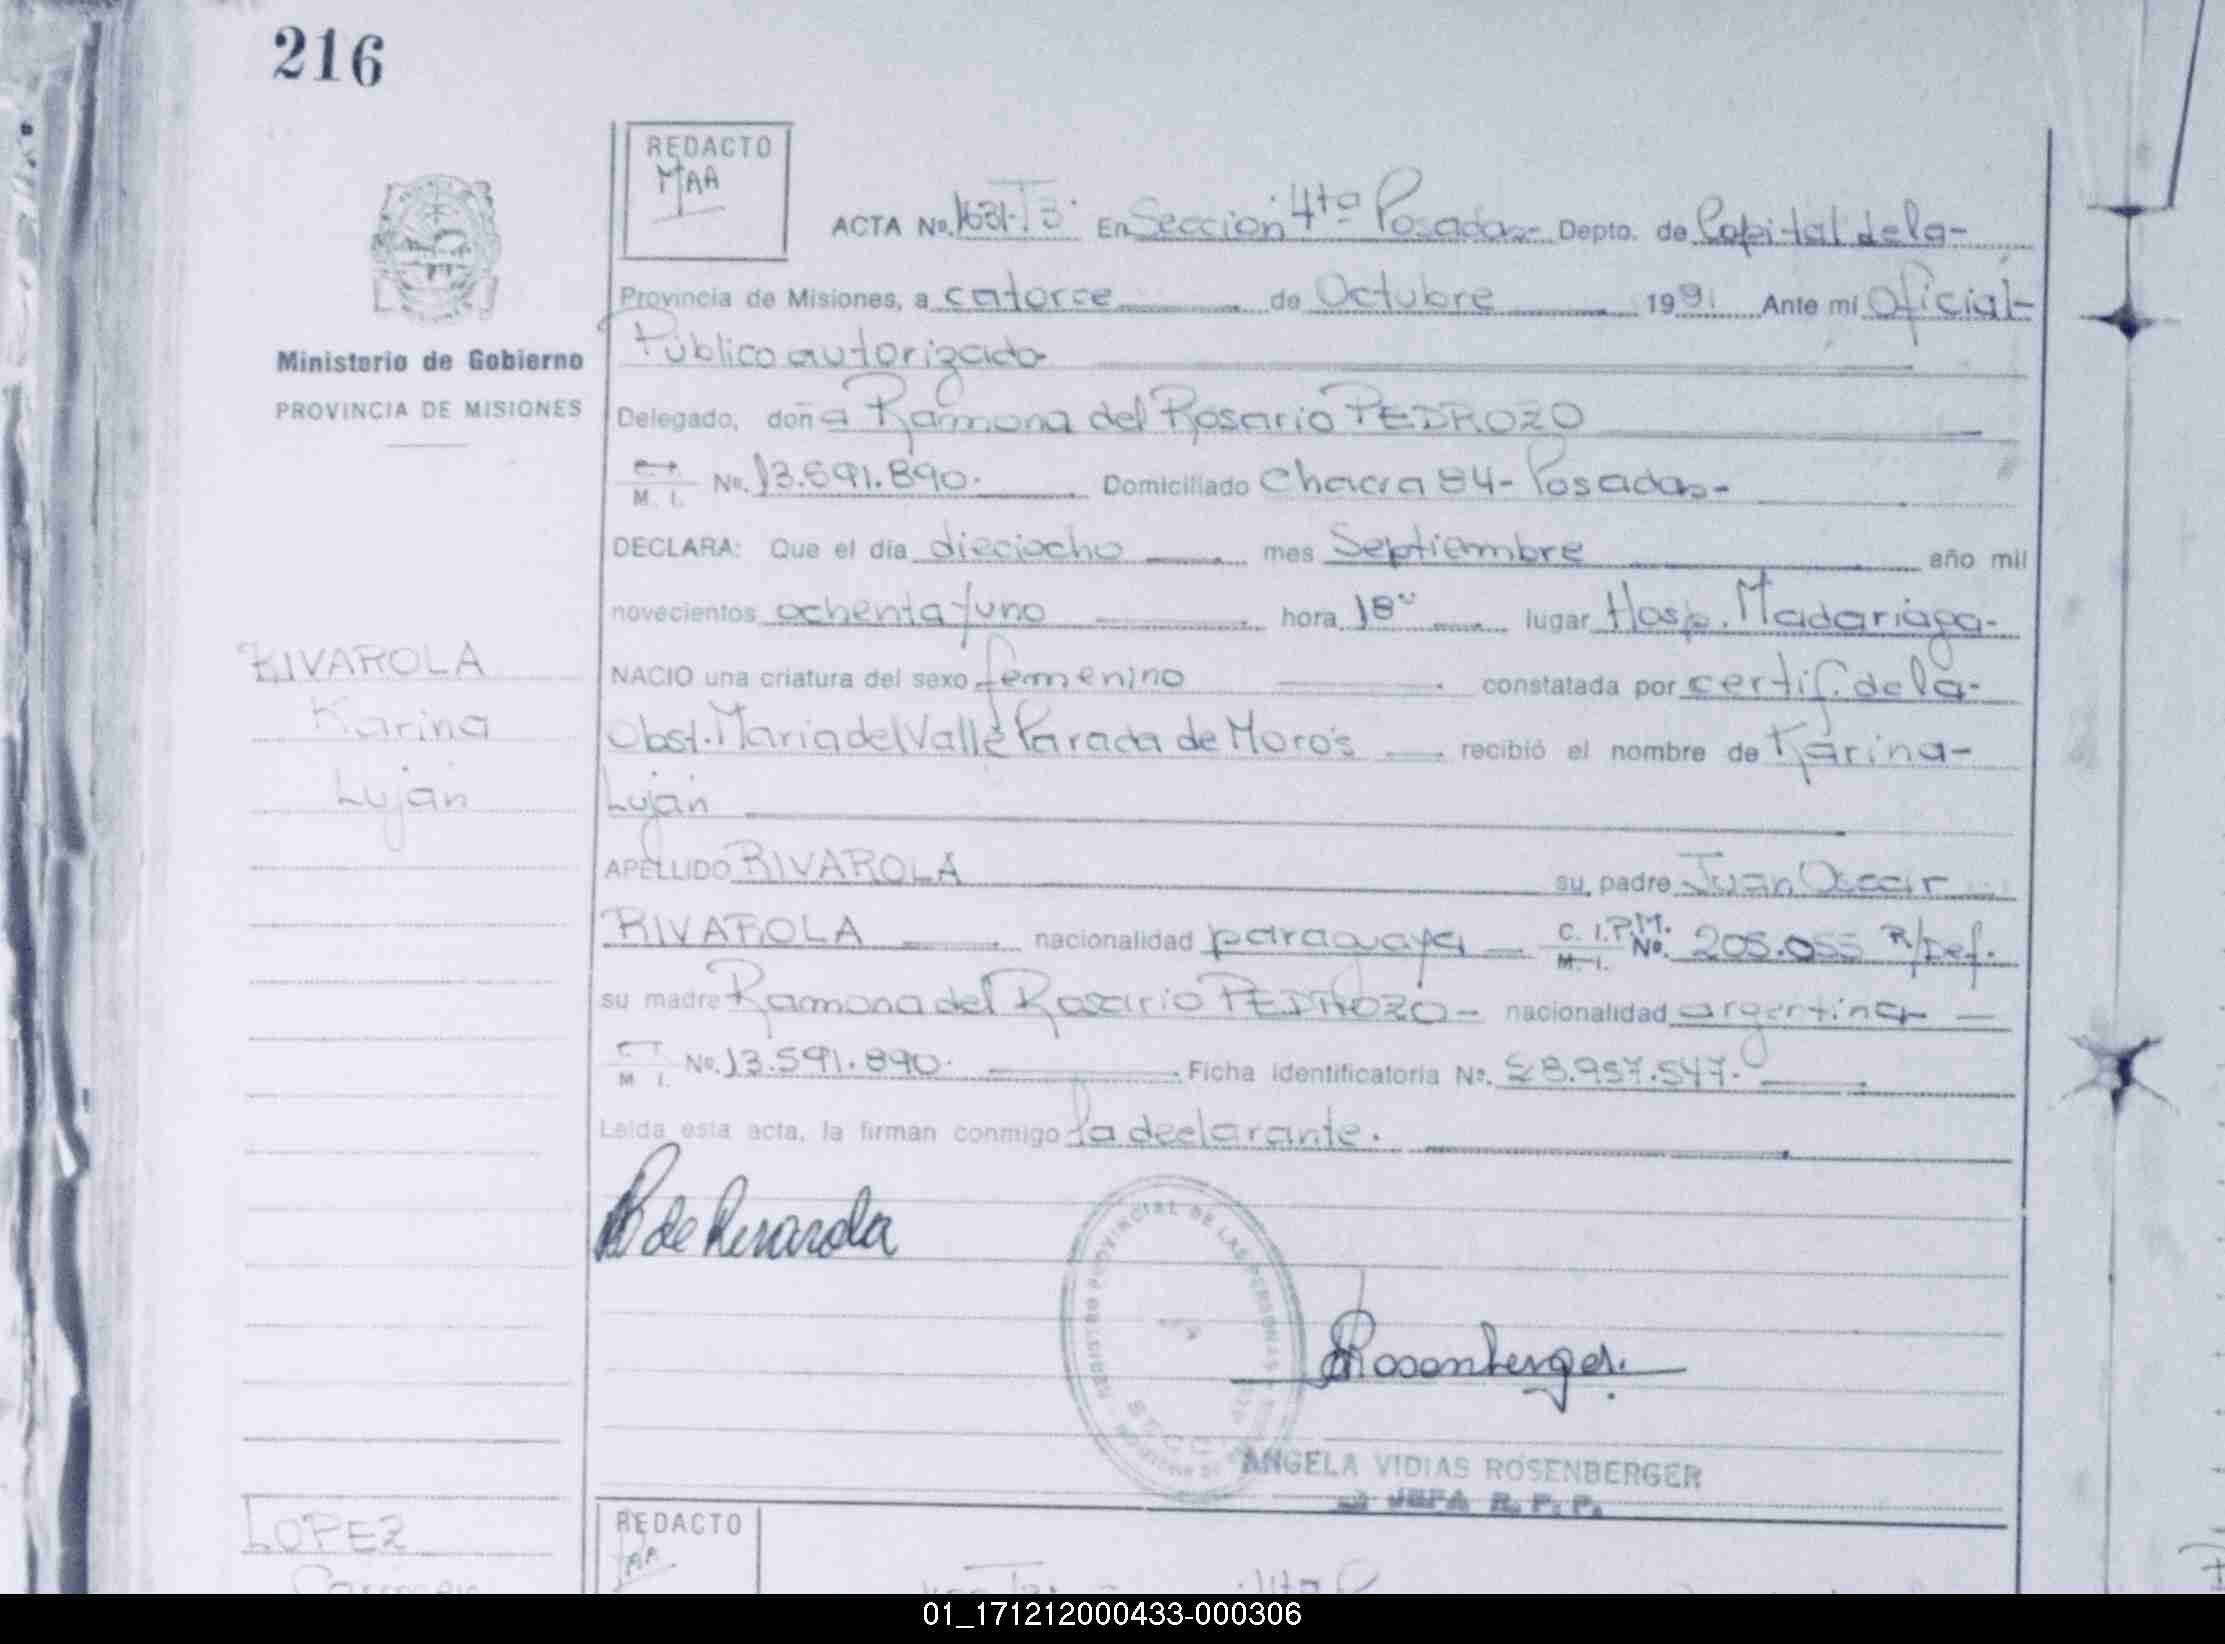 216
REDACTO
MAA
ACTA No. 1631-T3· En Sección 4ta Posadas- Depto. de Capital de la-
Provincia de Misiones, a catorce de Octubre 1981 Ante mí Oficial-
Público autorizado
Ministerio de Gobierno
PROVINCIA DE MISIONES
Delegado, doña Ramona del Rosario PEDROZO
M. I. No. 13.591.890. Domiciliado Chacra 84- Posadas-
DECLARA: Que el día dieciocho mes Septiembre año mil
novecientos ochenta y uno hora 18 lugar Hosp. Madariaga-
RIVAROLA
Karina
Luján
NACIO una criatura del sexo femenino constatada por certif. de la-
Obst. María del Valle Parada de Moro's recibió el nombre de Karina-
Luján
APELLIDO RIVAROLA su padre Juan Oscar
RIVAROLA nacionalidad paraguaya C. I. P.M. M. I. No. 205.055 R/Def.
su madre Ramona del Rosario PEDROZO- nacionalidad argentina
M I. No. 13.591.890. Ficha identificatoria No. 28.957.547.
Leída esta acta, la firman conmigo la declarante.
R de Rivarola
REGISTRO PROVINCIAL DE LAS PERSONAS
Rosenberger
ANGELA VIDIAS ROSENBERGER
JEFA R. P. P.
LOPEZ
Carmen
REDACTO
01_171212000433-000306